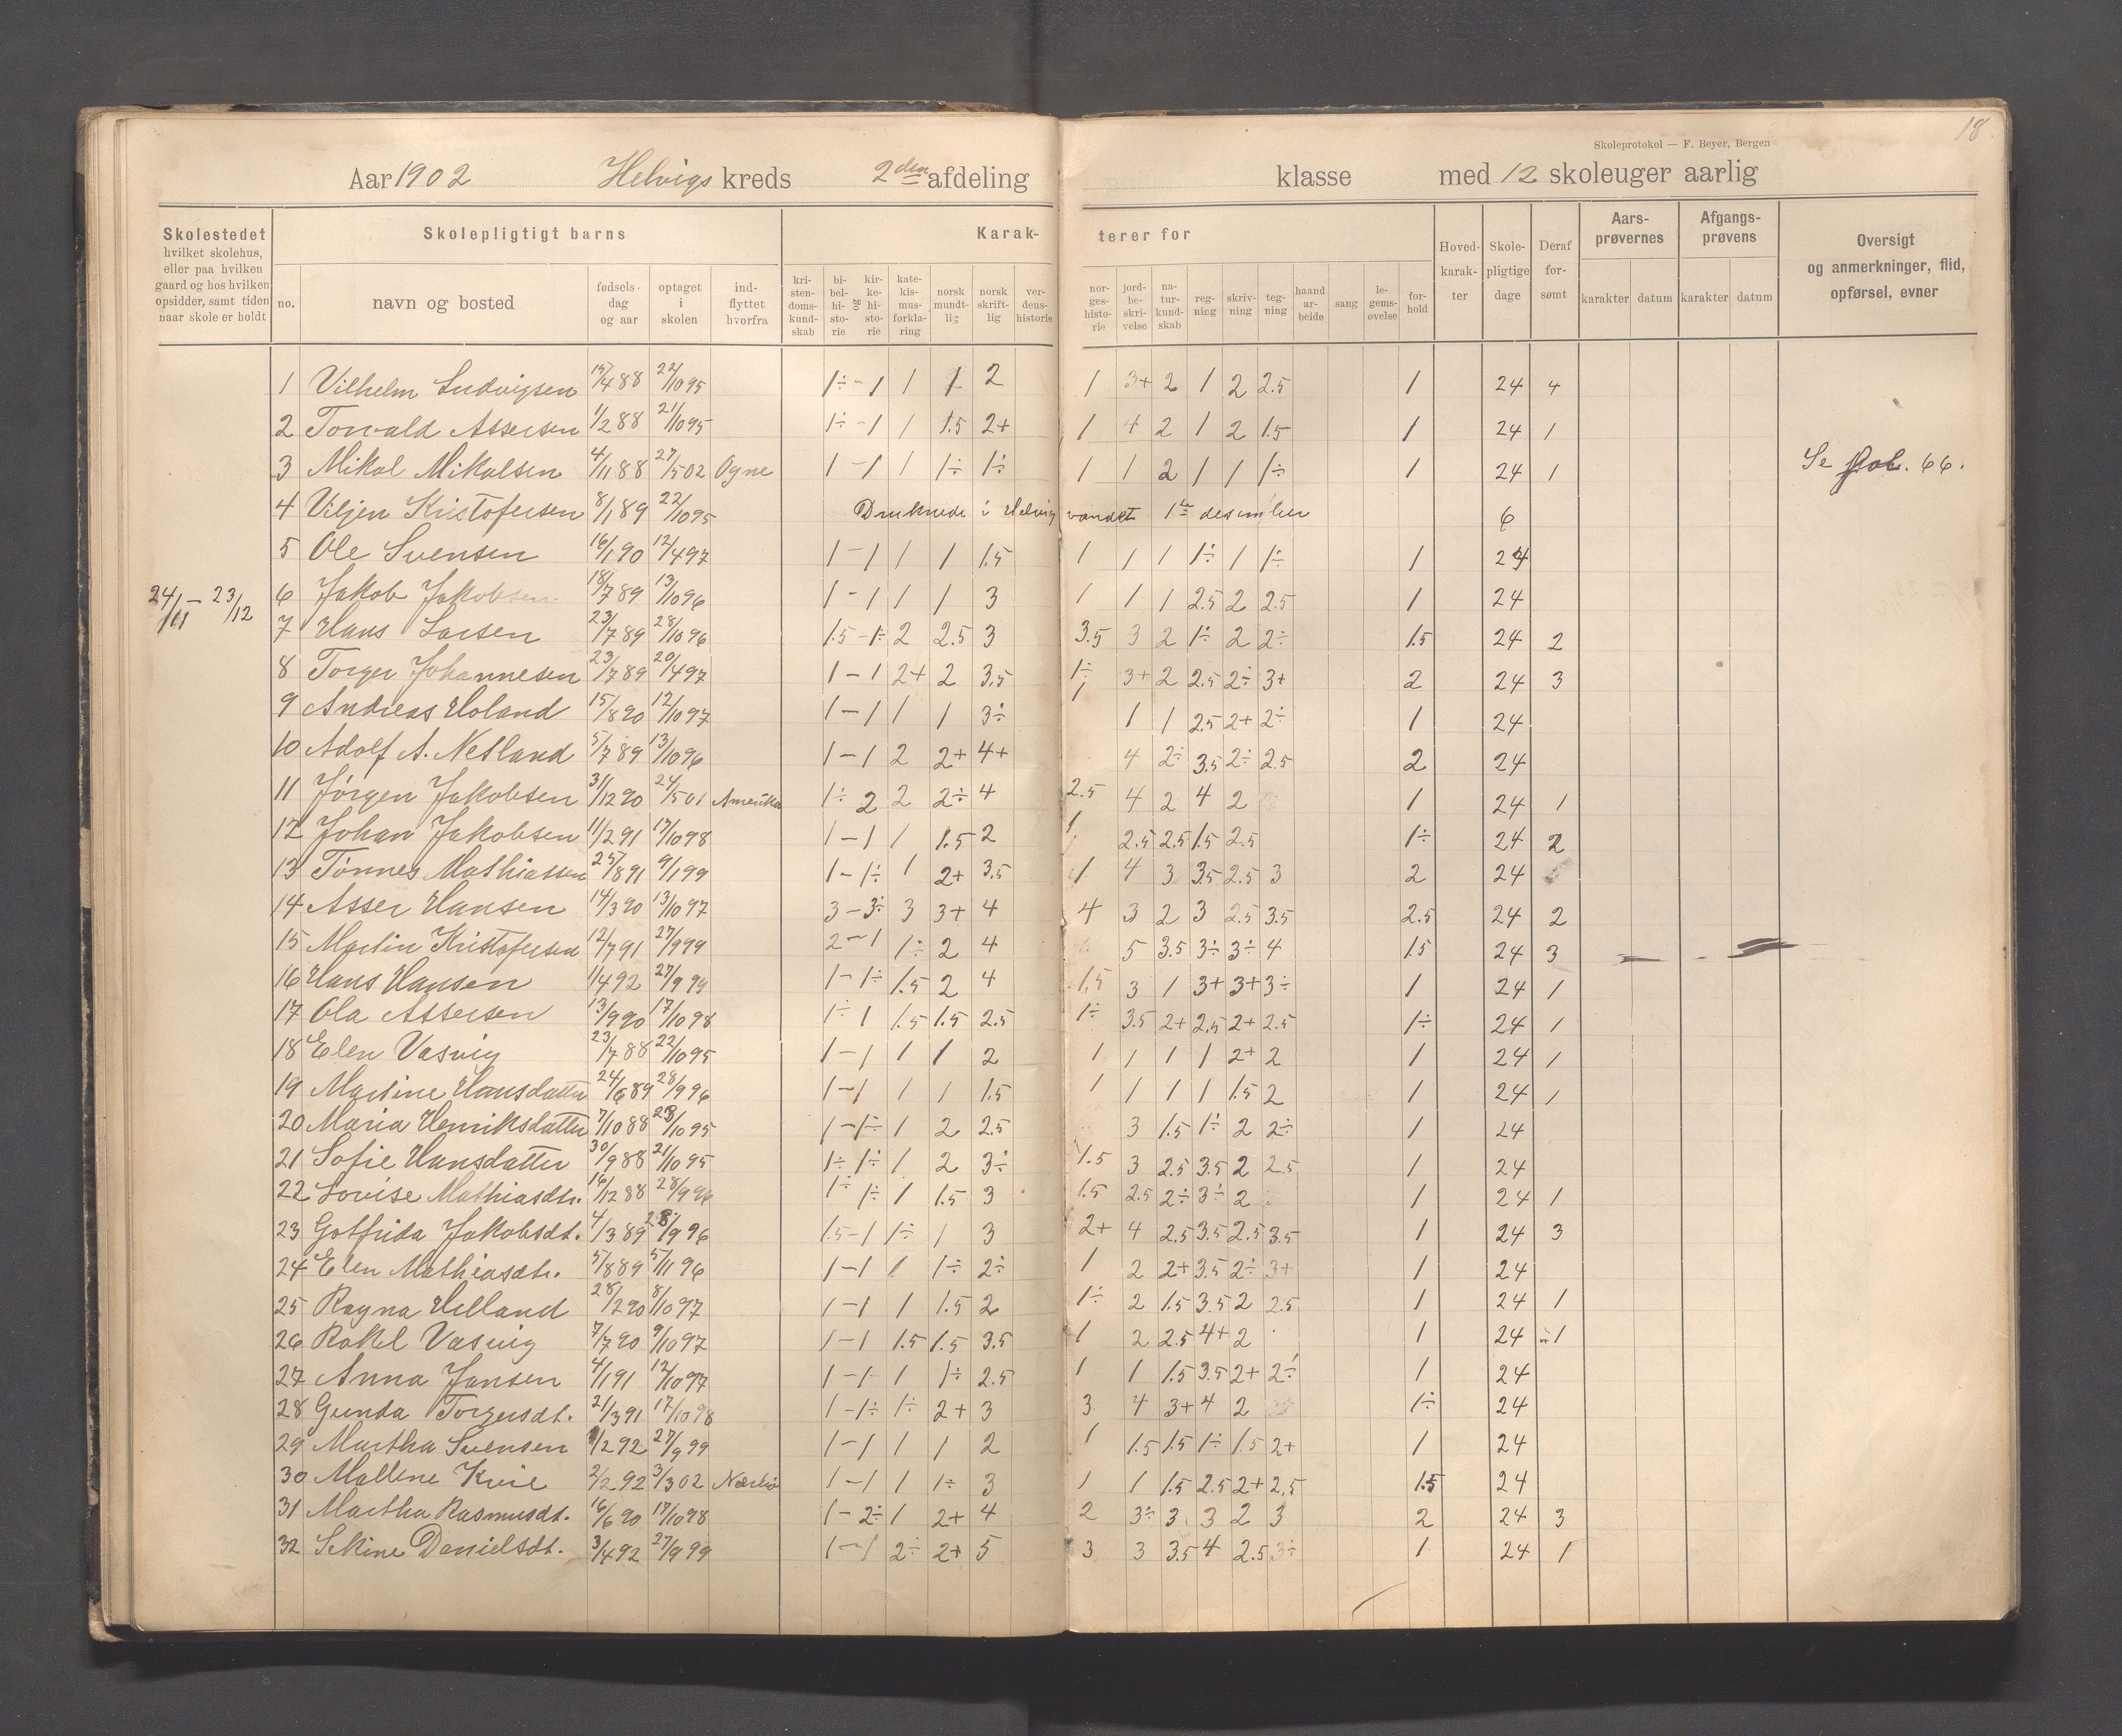 18.
Skoleprotokol — F. Beyer, Bergen
Aar 1902 Helvigs kreds 2den afdeling klasse med 12 skoleuger aarlig
Skolestedet hvilket skolehus, eller paa hvilken gaard og hos hvilken opsidder, samt tiden naar skole er holdt
Skolepligtigt barns
no. navn og bosted fødsels-dag og aar optaget i skolen ind-flyttet hvorfra
Karak-terer for
kri-sten-doms-kund-skab bi-bel-hi-sto-rie og kir-ke-hi-sto-rie kate-kis-mus-forkla-ring norsk mundt-lig norsk skrift-lig ver-dens-historie nor-ges-histo-rie jord-be-skri-velse na-tur-kund-skab reg-ning skriv-ning teg-ning haand ar-beide sang le-gems-øvelse for-hold
Hoved-karak-ter Skole-pligtige dage Deraf for-sømt
Aars-prøvernes karakter datum
Afgangs-prøvens karakter datum
Oversigt og anmerkninger, flid, opførsel, evner
24/11 – 23/12
1 Vilhelm Ludvigsen 15/4 88 22/10 95 1÷ - 1 1 1 2 1 3+ 2 1 2 2.5 1 24 4
2 Torvald Assersen 1/2 88 21/10 95 1÷ - 1 1 1.5 2+ 1 4 2 1 2 1.5 1 24 1
3 Mikal Mikalsen 4/11 88 27/5 02 Ogne 1 - 1 1 1÷ 1÷ 1 1 2 1 1 1÷ 1 24 1 Se 66.
4 Viljen Kristofersen 8/1 89 22/10 95 Druknede i Helvigvandet 1ste desember 6
5 Ole Svensen 16/1 90 12/4 97 1 - 1 1 1 1.5 1 1 1 1÷ 1 1÷ 1 24
6 Jakob Jakobsen 18/7 89 13/10 96 1 - 1 1 1 3 1 1 1 2.5 2 2.5 1 24
7 Hans Larsen 23/7 89 28/10 96 1.5 - 1÷ 2 2.5 3 3.5 3 2 1÷ 2 2÷ 1.5 24 2
8 Torger Johannesen 23/7 89 20/4 97 1 - 1 2+ 2 3.5 1÷ 3+ 2 2.5 2÷ 3+ 2 24 3
9 Andreas Holand 15/8 90 12/10 97 1 - 1 1 1 3÷ 1 1 1 2.5 2+ 2÷ 1 24
10 Adolf A. Netland 5/7 89 13/10 96 1 - 1 2 2+ 4+ 4 2÷ 3.5 2÷ 2.5 2 24
11 Jørgen Jakobsen 31/12 90 24/5 01 Amerika 1÷ 2 2 2÷ 4 2.5 4 2 4 2 1 24 1
12 Johan Jakobsen 11/2 91 17/10 98 1 - 1 1 1.5 2 1 2.5 2.5 1.5 2.5 1÷ 24 2
13 Tønnes Mathiassen 25/8 91 9/1 99 1 - 1÷ 1 2+ 3.5 1 4 3 3.5 2.5 3 2 24
14 Asser Hansen 14/3 90 13/10 97 3 - 3÷ 3 3+ 4 4 3 2 3 2.5 3.5 2.5 24 2
15 Martin Kristofersen 12/7 91 27/9 99 2 - 1 1÷ 2 4 5 3.5 3÷ 3÷ 4 1.5 24 3
16 Hans Hansen 1/4 92 27/9 99 1 - 1÷ 1.5 2 4 1.5 3 1 3+ 3+ 3÷ 1 24 1
17 Ola Assersen 13/9 90 17/10 98 1÷ 1 1.5 1.5 2.5 1÷ 3.5 2+ 2.5 2+ 2.5 1÷ 24 1
18 Elen Vasvig 23/7 88 22/10 95 1 - 1 1 1 2 1 1 1 1 2+ 2 1 24 1
19 Martine Hansdatter 24/6 89 28/9 96 1 - 1 1 1 1.5 1 1 1 1 1.5 2 1 24 1
20 Maria Henriksdatter 7/10 88 23/10 95 1 - 1÷ 1 2 2.5 3 1.5 1÷ 2 2÷ 1 24
21 Sofie Hansdatter 30/9 88 21/10 95 1÷ 1÷ 1 2 3÷ 1.5 3 2.5 3.5 2 2.5 1 24
22 Lovise Mathiasdtr. 16/12 88 28/9 96 1÷ 1÷ 1 1.5 3 1.5 2.5 2÷ 3÷ 2 1 24 1
23 Gotfrida Jakobsdt. 4/3 89 28/9 96 1.5 - 1 1÷ 1 3 2+ 4 2.5 3.5 2.5 3.5 1 24 3
24 Elen Mathiasdtr. 5/8 89 5/11 96 1 - 1 1 1÷ 2÷ 1 2 2+ 3.5 2÷ 3+ 1 24
25 Ragna Helland 28/2 90 8/10 97 1 - 1 1 1.5 2 1÷ 2 1.5 3.5 2 2.5 1 24 1
26 Rakel Vasvig 7/7 90 9/10 97 1 - 1 1.5 1.5 3.5 1 2 2.5 4+ 2 1 24 1
27 Anna Jansen 4/1 91 12/10 97 1 - 1 1 1÷ 2.5 1 1 1.5 3.5 2+ 2÷ 1 24
28 Gunda Torgersdt. 21/3 91 17/10 98 1 - 1÷ 1÷ 2+ 3 3 4 3+ 4 2 1÷ 24
29 Martha Svensen 1/2 92 27/9 99 1 - 1 1 1 2 1 1.5 1.5 1÷ 1.5 2+ 1 24
30 Mallene Kvie 2/2 92 3/3 02 Nærbø 1 - 1 1 1÷ 3 1 1 1.5 2.5 2+ 2.5 1.5 24
31 Martha Rasmusdt. 16/6 90 17/10 98 1 - 2÷ 1 2+ 4 2 3÷ 3 3 2 3 2 24 3
32 Sekine Danielsdt. 3/4 92 27/9 99 1 - 1 2÷ 2+ 5 3 3 3.5 4 2.5 3÷ 1 24 1